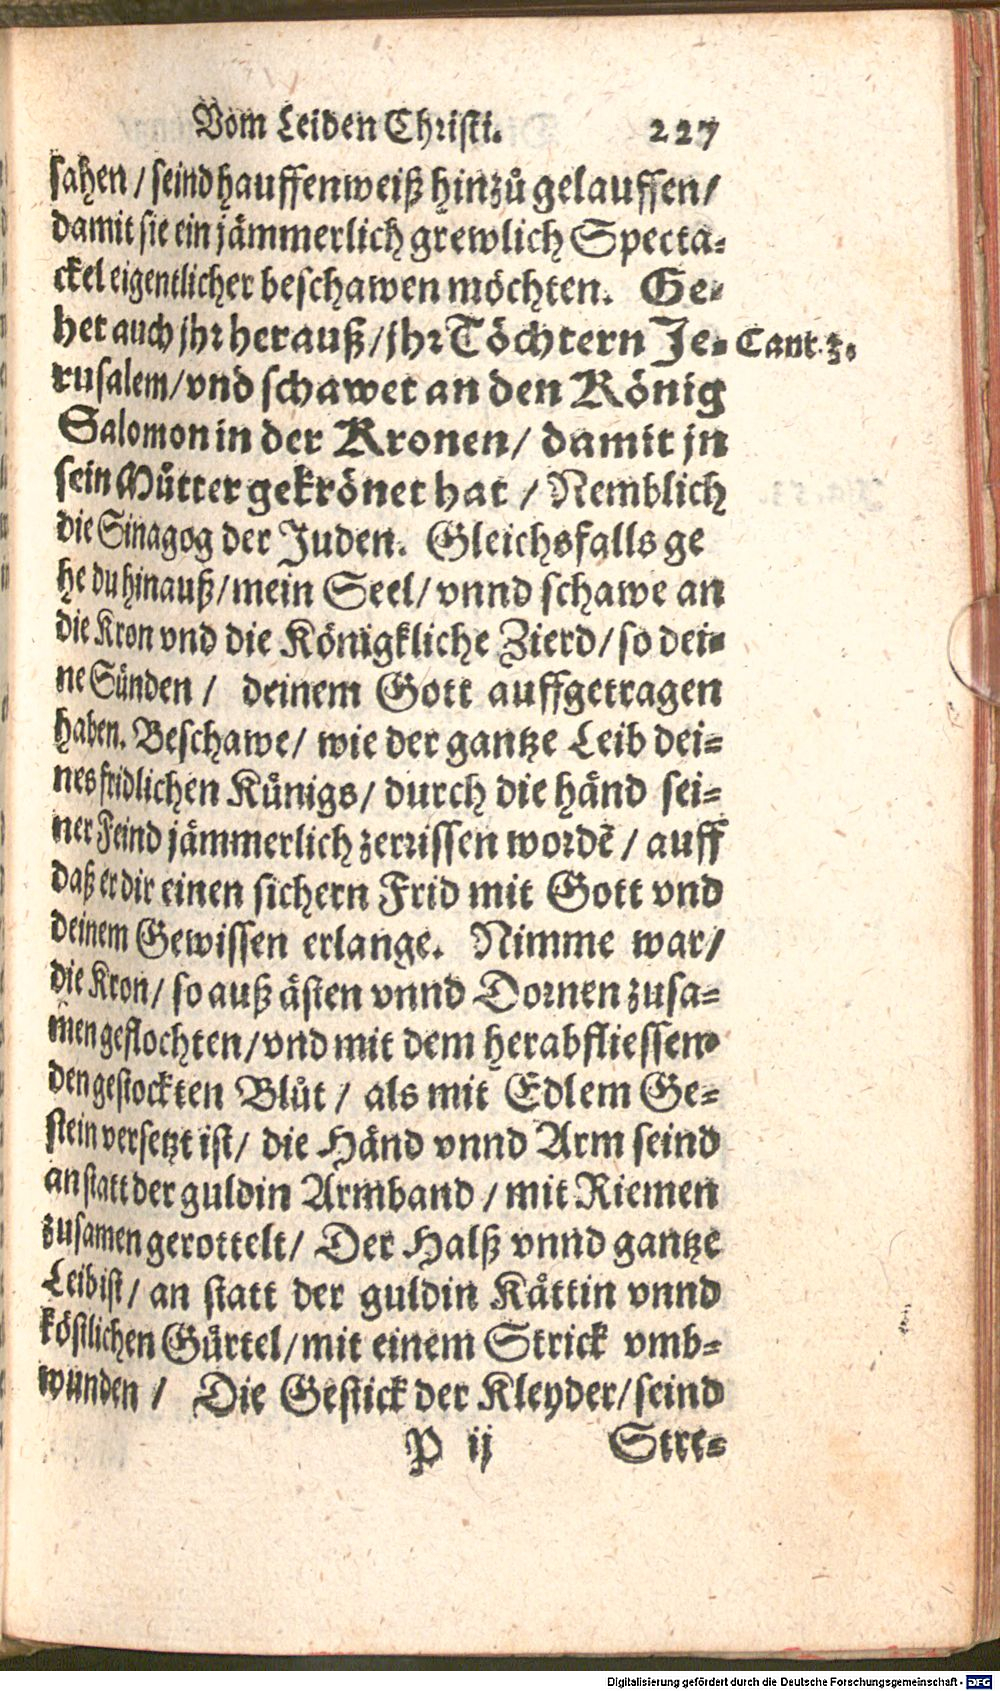 Vom Leiden Christi. 227
sahen / seind hauffenweiß hinzů gelauffen /
damit sie ein jämmerlich grewlich Specta-
ckel eigentlicher beschawen möchten. Ge-
het auch jhr herauß / jhr Töchtern Je- Cant. 3.
rusalem / vnd schawet an den König
Salomon in der Kronen / damit jn
sein Můtter gekrönet hat / Nemblich
die Sinagog der Juden. Gleichsfalls ge
he du hinauß / mein Seel / vnnd schawe an
die Kron vnd die Königkliche Zierd / so dei-
ne Sünden / deinem Gott auffgetragen
haben. Beschawe / wie der gantze Leib dei-
nes fridlichen Künigs / durch die händ sei-
ner Feind jämmerlich zerrissen wordẽ / auff
daß er dir einen sichern Frid mit Gott vnd
deinem Gewissen erlange. Nimme war /
die Kron / so auß ästen vnnd Dornen zusa-
men geflochten / vnd mit dem herabfliessen-
den gestockten Blůt / als mit Edlem Ge-
stein versetzt ist / die Händ vnnd Arm seind
an statt der guldin Armband / mit Riemen
zusamen gerottelt / Der Halß vnnd gantze
Leib ist / an statt der guldin Kättin vnnd
köstlichen Gürtel / mit einem Strick vmb-
wunden / Die Gestick der Kleyder / seind
P ij Stre-
Digitalisierung gefördert durch die Deutsche Forschungsgemeinschaft - DFG